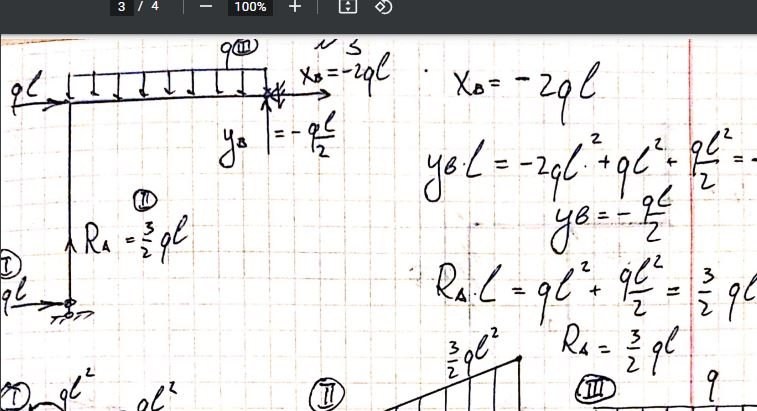 3 / 4 — 100% +
q III
ql
X_B = -2ql
y_B = -ql/2
II
R_A = 3/2 ql
I
ql
X_B = -2ql
y_B·l = -2ql² + ql² + ql²/2 = -
y_B = -ql/2
R_A·l = ql² + ql²/2 = 3/2 ql
R_A = 3/2 ql
I
ql²
ql²
II
3/2 ql²
III
q